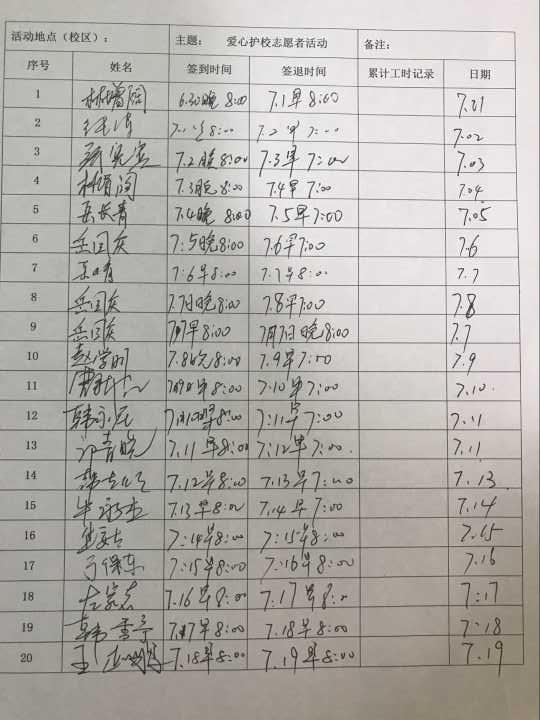 活动地点（校区）： 主题： 爱心护校志愿者活动 备注：
序号 姓名 签到时间 签退时间 累计工时记录 日期
1 林增阔 6.30晚 8:00 7.1早 8:00 7.01
2 7.2早 7:00 7.02
3 7.2晚 8:00 7.3早 7:00 7.03
4 林增阔 7.3晚 8:00 7.4早 7:00 7.04
5 岳长青 7.4晚 8:00 7.5早 7:00 7.05
6 岳国庆 7:5晚 8:00 7.6早 7:00 7.6
7 7:6早 8:00 7.7早 8:00 7.7
8 岳国庆 7.7日晚 8:00 7.8早 7:00 7.8
9 岳国庆 早 8:00 7月7日晚 8:00 7.7
10 赵学明 7.8晚 8:00 7.9早 7:00 7.9
11 早 8:00 7.10早 7:00 7.10
12 韩 8:00 7:11早 7:00 7.11
13 许青晓 7.11早 8:00 7:12早 7:00 7.11
14 7.12早 8:00 7.13早 7:00 7.13
15 7.13早 8:00 7.14早 7:00 7.14
16 7:14早 8:00 7:15早 8:00 7.15
17 于保东 7:15早 8:00 7:16早 8:00 7.16
18 7.16早 8:00 7:17早 8:00 7:17
19 韩雪亭 7.17早 8:00 7.18早 8:00 7:18
20 王 7.18早 8:00 7.19早 8:00 7.19